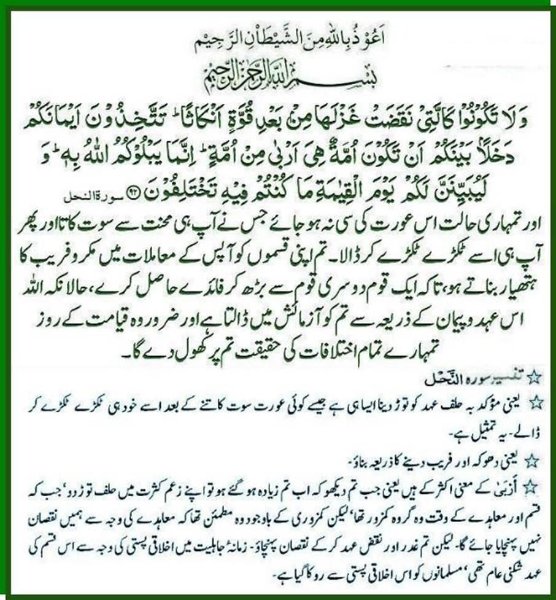 اَعُوْذُ بِاللّٰهِ مِنَ الشَّيْطَانِ الرَّجِيْمِ
بِسْمِ اللّٰهِ الرَّحْمٰنِ الرَّحِيْمِ
وَلَا تَكُوْنُوْا كَالَّتِيْ نَقَضَتْ غَزْلَهَا مِنْ بَعْدِ قُوَّةٍ اَنْكَاثًا ؕ تَتَّخِذُوْنَ اَيْمَانَكُمْ
دَخَلًاۢ بَيْنَكُمْ اَنْ تَكُوْنَ اُمَّةٌ هِيَ اَرْبٰى مِنْ اُمَّةٍ ؕ اِنَّمَا يَبْلُوْكُمُ اللّٰهُ بِهٖ ؕ وَ
لَيُبَيِّنَنَّ لَكُمْ يَوْمَ الْقِيٰمَةِ مَا كُنْتُمْ فِيْهِ تَخْتَلِفُوْنَ ﴿۹۲﴾ سورة النحل
اور تمہاری حالت اس عورت کی سی نہ ہو جائے جس نے آپ ہی محنت سے سوت کاتا اور پھر
آپ ہی اسے ٹکڑے ٹکڑے کر ڈالا۔ تم اپنی قسموں کو آپس کے معاملات میں مکر و فریب کا
ہتھیار بناتے ہو، تاکہ ایک قوم دوسری قوم سے بڑھ کر فائدے حاصل کرے، حالانکہ اللہ
اس عہد و پیمان کے ذریعہ سے تم کو آزمائش میں ڈالتا ہے اور ضرور وہ قیامت کے روز
تمہارے تمام اختلافات کی حقیقت تم پر کھول دے گا۔
☆ تفسیر سورہ النَّحْل
☆ یعنی مؤکد بہ حلف عہد کو توڑ دینا ایسا ہی ہے جیسے کوئی عورت سوت کاتنے کے بعد اسے خود ہی ٹکڑے ٹکڑے کر
ڈالے۔ یہ تمثیل ہے۔
☆ یعنی دھوکہ اور فریب دینے کا ذریعہ بناؤ۔
☆ اَرْبٰی کے معنی اکثر کے ہیں یعنی جب تم دیکھو کہ اب تم زیادہ ہو گئے ہو تو اپنے زعم کثرت میں حلف توڑ دو، جب کہ
قسم اور معاہدے کے وقت وہ گروہ کمزور تھا، لیکن کمزوری کے باوجود وہ مطمئن تھا کہ معاہدے کی وجہ سے ہمیں نقصان
نہیں پہنچایا جائے گا۔ لیکن تم غدر اور نقض عہد کر کے نقصان پہنچاؤ۔ زمانۂ جاہلیت میں اخلاقی پستی کی وجہ سے اس قسم کی
عہد شکنی عام تھی، مسلمانوں کو اس اخلاقی پستی سے روکا گیا ہے۔